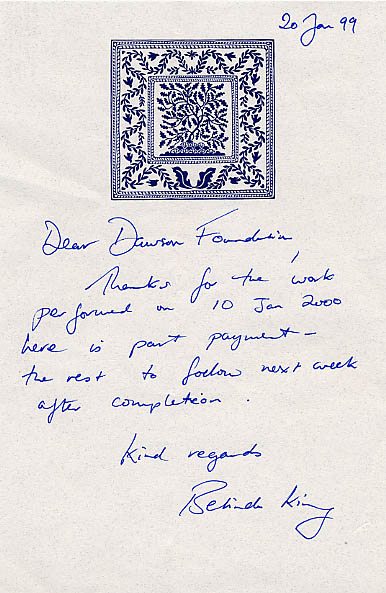 20 Jan 99
Dear Dawson Foundation,
Thanks for the work
performed on 10 Jan 2000
here is part payment –
the rest to follow next week
after completion.
Kind regards
Belinda King